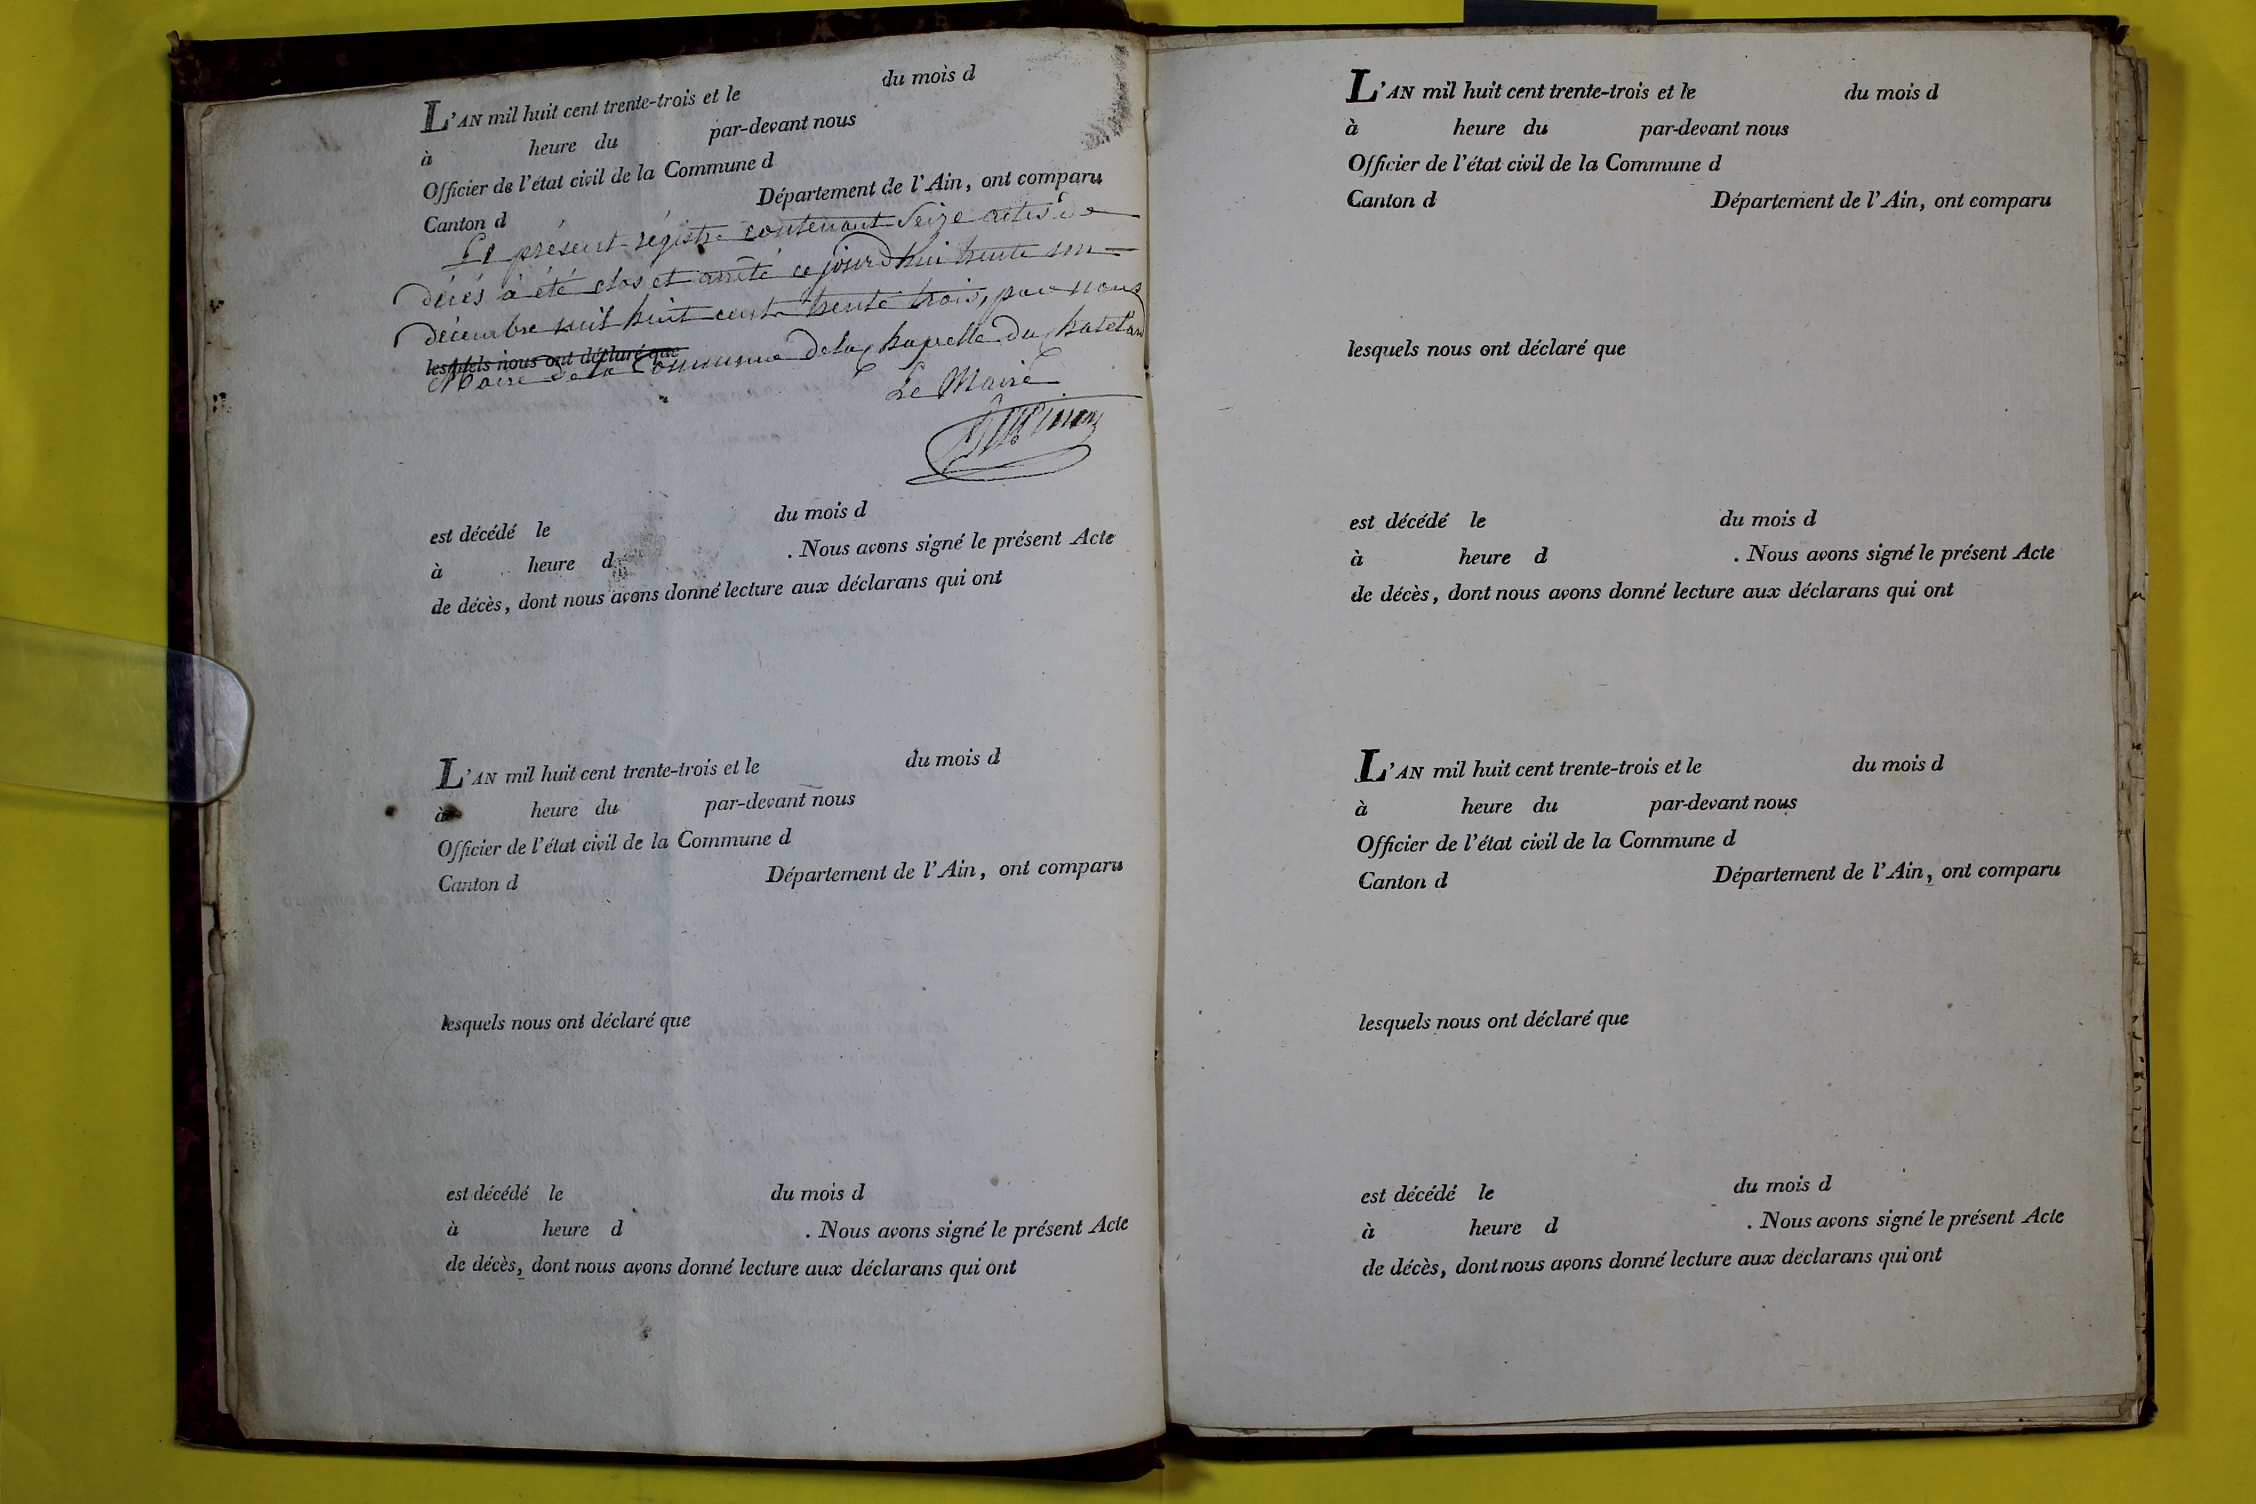 L'AN mil huit cent trente-trois et le du mois d
à heure du par-devant nous
Officier de l'état civil de la Commune d
Canton d Département de l'Ain, ont comparu
Le présent régistre contenant Seize actes de
décés a été clos et arrêté ce jourd'hui trente un
décembre mil huit cent trente trois, par nous
lesquels nous ont déclaré que
Maire de la Commune de la Chapelle du Chatelard
Le Maire
est décédé le du mois d
à heure d . Nous avons signé le présent Acte
de décès, dont nous avons donné lecture aux déclarans qui ont
L'AN mil huit cent trente-trois et le du mois d
à heure du par-devant nous
Officier de l'état civil de la Commune d
Canton d Département de l'Ain, ont comparu
lesquels nous ont déclaré que
est décédé le du mois d
à heure d . Nous avons signé le présent Acte
de décès, dont nous avons donné lecture aux déclarans qui ont
L'AN mil huit cent trente-trois et le du mois d
à heure du par-devant nous
Officier de l'état civil de la Commune d
Canton d Département de l'Ain, ont comparu
lesquels nous ont déclaré que
est décédé le du mois d
à heure d . Nous avons signé le présent Acte
de décès, dont nous avons donné lecture aux déclarans qui ont
L'AN mil huit cent trente-trois et le du mois d
à heure du par-devant nous
Officier de l'état civil de la Commune d
Canton d Département de l'Ain, ont comparu
lesquels nous ont déclaré que
est décédé le du mois d
à heure d . Nous avons signé le présent Acte
de décès, dont nous avons donné lecture aux déclarans qui ont